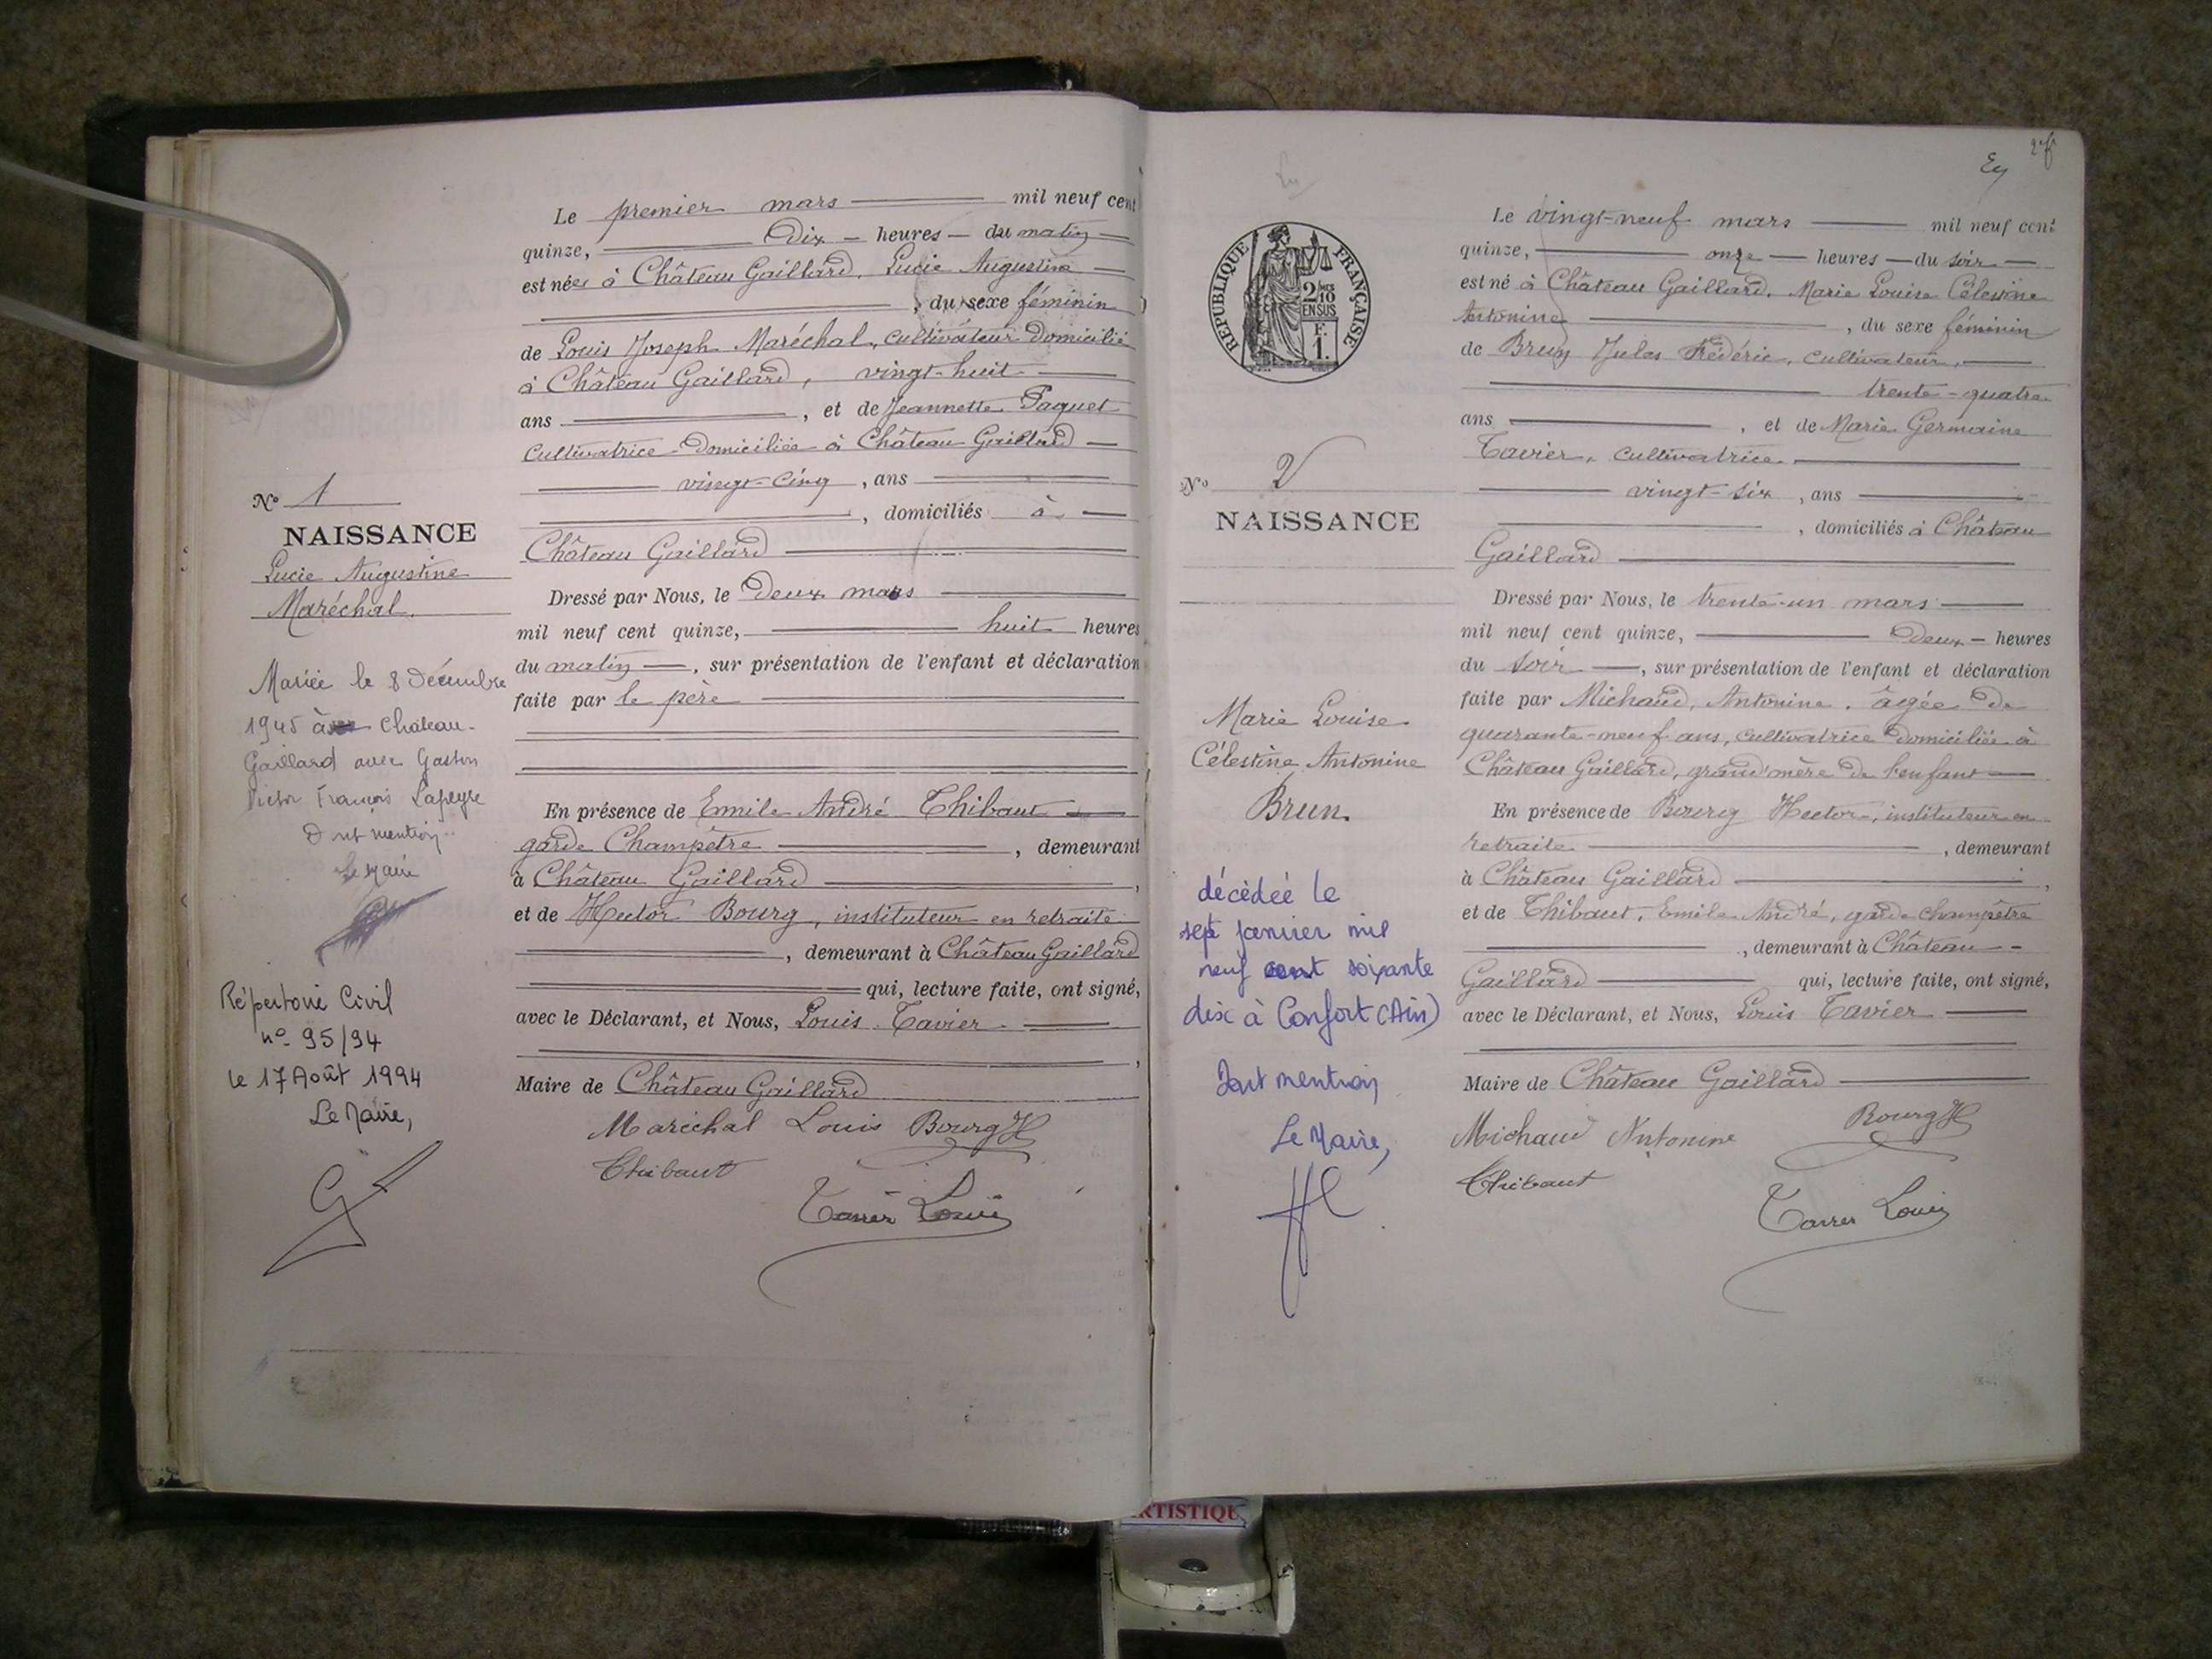 Le premier mars mil neuf cent
quinze, Dix heures du matin
est née à Château Gaillard, Lucie Augustine
, du sexe féminin
de Louis Joseph Maréchal, cultivateur domicilié
à Château Gaillard, vingt-huit
ans , et de Jeannette Paquet
cultivatrice domiciliée à Château Gaillard
vingt-cinq , ans
, domiciliés à
Château Gaillard
Dressé par Nous, le deux mars
mil neuf cent quinze, huit heures
du matin , sur présentation de l'enfant et déclaration
faite par le père
En présence de Emile André Thibaut
garde Champêtre , demeurant
à Château Gaillard ,
et de Hector Bourg, instituteur en retraite
, demeurant à Château Gaillard
qui, lecture faite, ont signé,
avec le Déclarant, et Nous, Louis Tavier
,
Maire de Château Gaillard
Maréchal Louis Bourg H
Thibaut
Tavier Louis
No 1
NAISSANCE
Lucie Augustine
Maréchal.
Mariée le 8 Décembre
1945 à Château-
Gaillard avec Gaston
Victor François Lapeyre
Dont mention
Le Maire
Répertoire Civil
no 95/94
le 17 Août 1994
Le Maire,
27
RÉPUBLIQUE FRANÇAISE
2/10
EN SUS
F.
1.
No 2
NAISSANCE
Marie Louise
Célestine Antonine
Brun.
décédée le
sept janvier mil
neuf cent soixante
dix à Confort (Ain)
Dont mention
Le Maire,
Le vingt-neuf mars mil neuf cent
quinze, onze heures du soir
est né à Château Gaillard, Marie Louise Célestine
Antonine , du sexe féminin
de Brun Jules Frédéric, cultivateur,
trente-quatre
ans , et de Marie Germaine
Tavier, cultivatrice
vingt-six , ans
, domiciliés à Château
Gaillard
Dressé par Nous, le trente-un mars
mil neuf cent quinze, deux heures
du soir , sur présentation de l'enfant et déclaration
faite par Michaud, Antonine, âgée de
quarante-neuf ans, cultivatrice domiciliée à
Château Gaillard, grand'mère de l'enfant
En présence de Bourg Hector, instituteur en
retraite , demeurant
à Château Gaillard ,
et de Thibaut, Emile André, garde champêtre
, demeurant à Château-
Gaillard qui, lecture faite, ont signé,
avec le Déclarant, et Nous, Louis Tavier
Maire de Château Gaillard
Michaud Antonine Bourg H
Thibaut
Tavier Louis
RTISTIQU